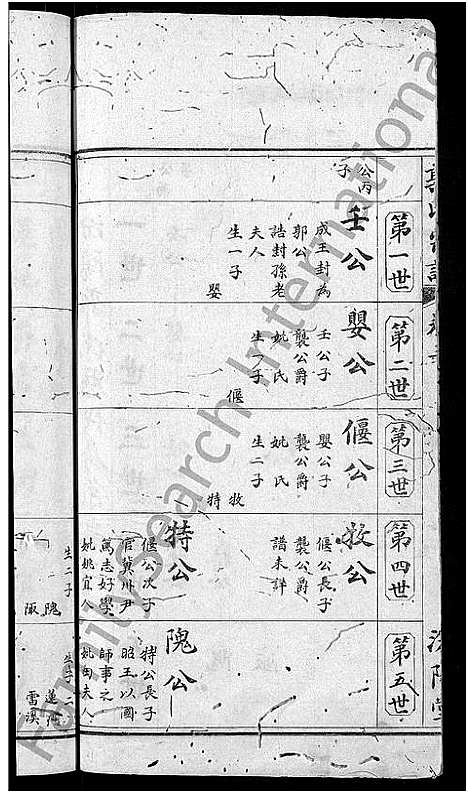 第一世
公丙子
壬公
成王封為
郭公
誥封孫老
夫人
生一子
嬰
第二世
嬰公
壬公子
襲公爵
妣氏
生一子
偃
第三世
偃公
嬰公子
襲公爵
妣氏
生二子
牧
特
第四世
牧公
偃公長子
襲公爵
譜未詳
特公
偃公次子
官冀州尹
篤志好學
妣姚宜人
生二子
隗
第五世
隗公
特公長子
昭王以國
師事之
夫人
生子二
雷漢
FamilySearch International